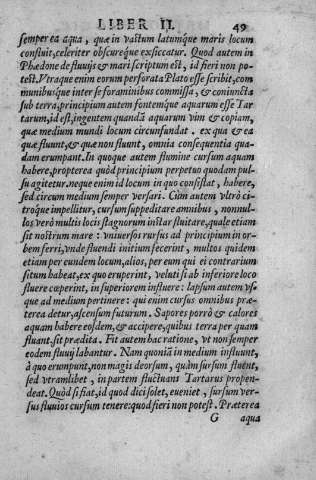 LIBER II. 49
semper ea aqua, quæ in vastum latumque maris locum
confluit, celeriter obscureque exsiccatur. Quod autem in
Phædone de fluuijs & mari scriptum est, id fieri non po-
test. Vtraque enim eorum perforata Plato esse scribit, com
munibusque inter se foraminibus commissa, & coniuncta
sub terra, principium autem fontemque aquarum esse Tar
tarum, id est, ingentem quandã aquarum vim & copiam,
quæ medium mundi locum circunfundat. ex qua & ea
quæ fluunt, & quæ non fluunt, omnia consequentia qua-
dam erumpant. In quoque autem flumine cursum aquam
habere, propterea quòd principium perpetuo quodam pul-
su agitetur. neque enim id locum in quo consistat, habere,
sed circum medium semper versari. Cùm autem vltrò ci-
troque impellitur, cursum suppeditare amnibus, nonnul-
los verò multis locis stagnorum instar fluitare, quale etiam
sit nostrum mare: vniuersos rursus ad principium in or-
bem ferri, vnde fluendi initium fecerint, multos quidem
etiam per eundem locum, alios, per eum qui ei contrarium
situm habeat, ex quo eruperint, veluti si ab inferiore loco
fluere cœperint, in superiorem influere: lapsum autem vs-
que ad medium pertinere: qui enim cursus omnibus præ-
terea detur, ascensum futurum. Sapores porrò & calores
aquam habere eosdem, & accipere, quibus terra per quam
fluant. sit prædita. Fit autem hac ratione, vt non semper
eodem fluuij labantur. Nam quoniã in medium influunt,
à quo erumpunt, non magis deorsum, quàm sursum fluent,
sed vtramlibet, in partem fluctuans Tartarus propen-
deat. Quòd si fiat, id quod dici solet, eueniet, sursum ver-
sus fluuios cursum tenere: quod fieri non potest. Præterea
G aqua